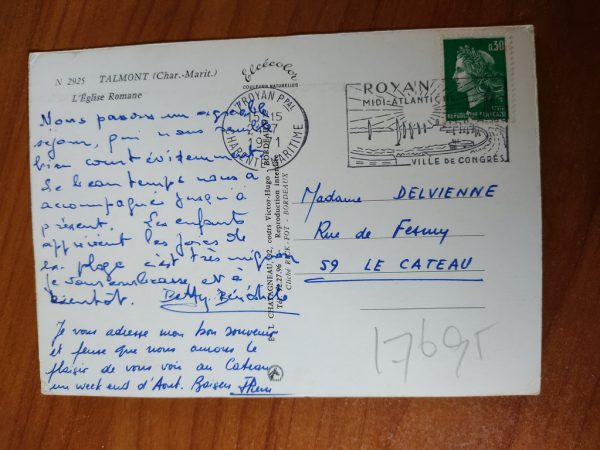 N 2925 TALMONT (Char.-Marit.)
L'Église Romane
Elcécolor
COULEURS NATURELLES
ROYAN Ppal
15H15
-7
1971
CHARENTE MARITIME
ROYAN
MIDI-ATLANTIQ
VILLE DE CONGRÈS
0,30
REPUBLIQUE FRANÇAISE
Nous passons un agréable
séjour, qui nous semble
bien court évidemment
Le beau temps nous a
accompagnés jusqu'à
présent. Les enfants
apprécient les joies de
la plage c'est très mignon
je vous embrasse et à
bientôt. Betty. Bénédicte
Je vous adresse mon bon souvenir
et pense que nous aurons le
plaisir de vous voir au Cateau
un week end d'Aout. Baisers
Édit. CHATAGNEAU 102, cours Victor-Hugo BORDEAUX
Tél. 92.27.96 Reproduction interdite
Cliché RECK.-FOT - BORDEAUX
Madame DELVIENNE
Rue de Fesmy
59 LE CATEAU
17695